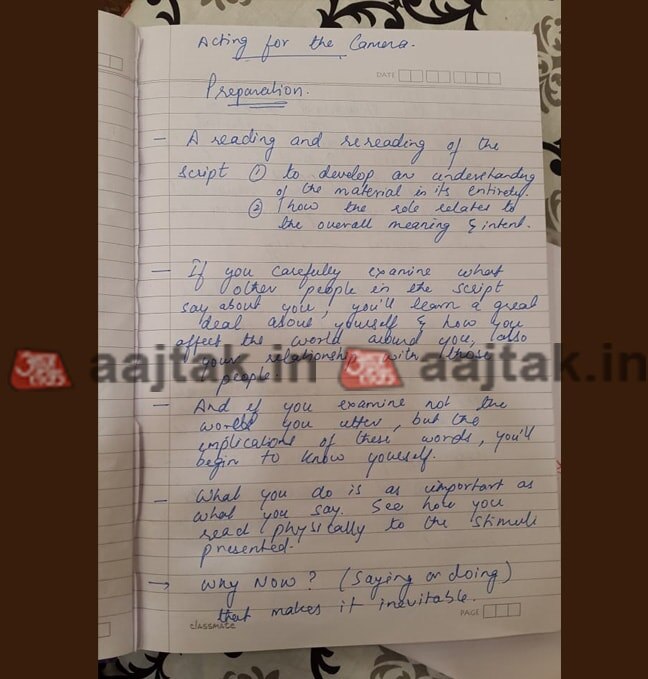 Acting for the Camera.
DATE
Preparation.
— A reading and rereading of the
script ① to develop an understanding
of the material in its entirety.
② how the role relates to
the overall meaning & intent.
— If you carefully examine what
other people in the script
say about you, you'll learn a great
deal about yourself & how you
affect the world around you, also
your relationship with those
people.
आज तक aajtak.in आज तक aajtak.in
— And if you examine not the
words you utter, but the
implications of these words, you'll
begin to know yourself.
— What you do is as important as
what you say. See how you
react physically to the stimuli
presented.
→ Why Now? (Saying or doing)
that makes it inevitable.
classmate
PAGE